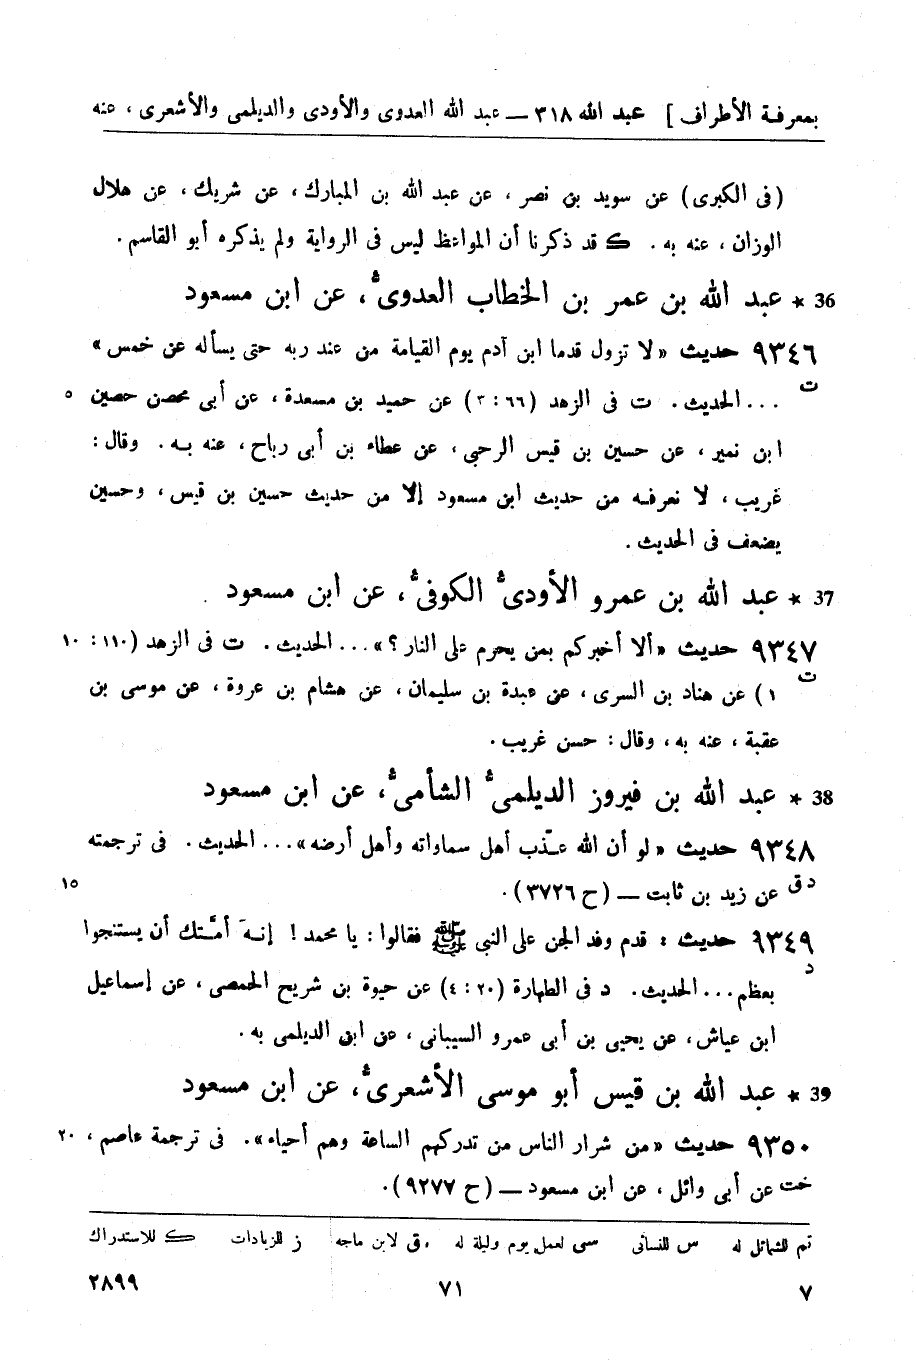 بمعرفة الأطراف ] عبد الله ٣١٨ — عبد الله العدوى والأودى والديلمى والأشعرى ، عنه
(فى الكبرى) عن سويد بن نصر ، عن عبد الله بن المبارك ، عن شريك ، عن هلال
الوزان ، عنه به . ك قد ذكرنا أن المواعظ ليس فى الرواية ولم يذكره أبو القاسم .
36 * عبد الله بن عمر بن الخطاب العدوىُّ ، عن ابن مسعود
٩٣٤٦ حديث «لا تزول قدما ابن آدم يوم القيامة من عند ربه حتى يسأله عن خمس»
ت ... الحديث . ت فى الزهد (٦٦ : ٢) عن حميد بن مسعدة ، عن أبى محصن حصين ٥
ابن نمير ، عن حسين بن قيس الرحبي ، عن عطاء بن أبى رباح ، عنه به . وقال :
غريب ، لا نعرفه من حديث ابن مسعود إلا من حديث حسين بن قيس ، وحسين
يضعف فى الحديث .
37 * عبد الله بن عمرو الأودىُّ الكوفىُّ ، عن ابن مسعود
٩٣٤٧ حديث «ألا أخبركم بمن يحرم على النار ؟» ... الحديث . ت فى الزهد (١١٠ : ١٠
ت ١) عن هناد بن السرى ، عن عبدة بن سليمان ، عن هشام بن عروة ، عن موسى بن
عقبة ، عنه به ، وقال : حسن غريب .
38 * عبد الله بن فيروز الديلمىُّ الشأمىُّ ، عن ابن مسعود
٩٣٤٨ حديث «لو أن الله عذّب أهل سماواته وأهل أرضه» ... الحديث . فى ترجمته
د ق عن زيد بن ثابت — (ح ٣٧٢٦) . ١٥
٩٣٤٩ حديث : قدم وفد الجن على النبى ﷺ فقالوا : يا محمد ! إنه أمّتك أن يستنجوا
د بعظم ... الحديث . د فى الطهارة (٢٠ : ٤) عن حيوة بن شريح الحمصى ، عن إسماعيل
ابن عياش ، عن يحيى بن أبى عمرو السيبانى ، عن ابن الديلمى به .
39 * عبد الله بن قيس أبو موسى الأشعرىُّ ، عن ابن مسعود
٩٣٥٠ حديث «من شرار الناس من تدركهم الساعة وهم أحياء» . فى ترجمة عاصم ، ٢٠
خت عن أبى وائل ، عن ابن مسعود — (ح ٩٢٧٧) .
تم للشمائل له س للنسائى سى لعمل يوم وليلة له ق لابن ماجه ز للزيادات ك للاستدراك
٧ ٧١ ٢٨٩٩